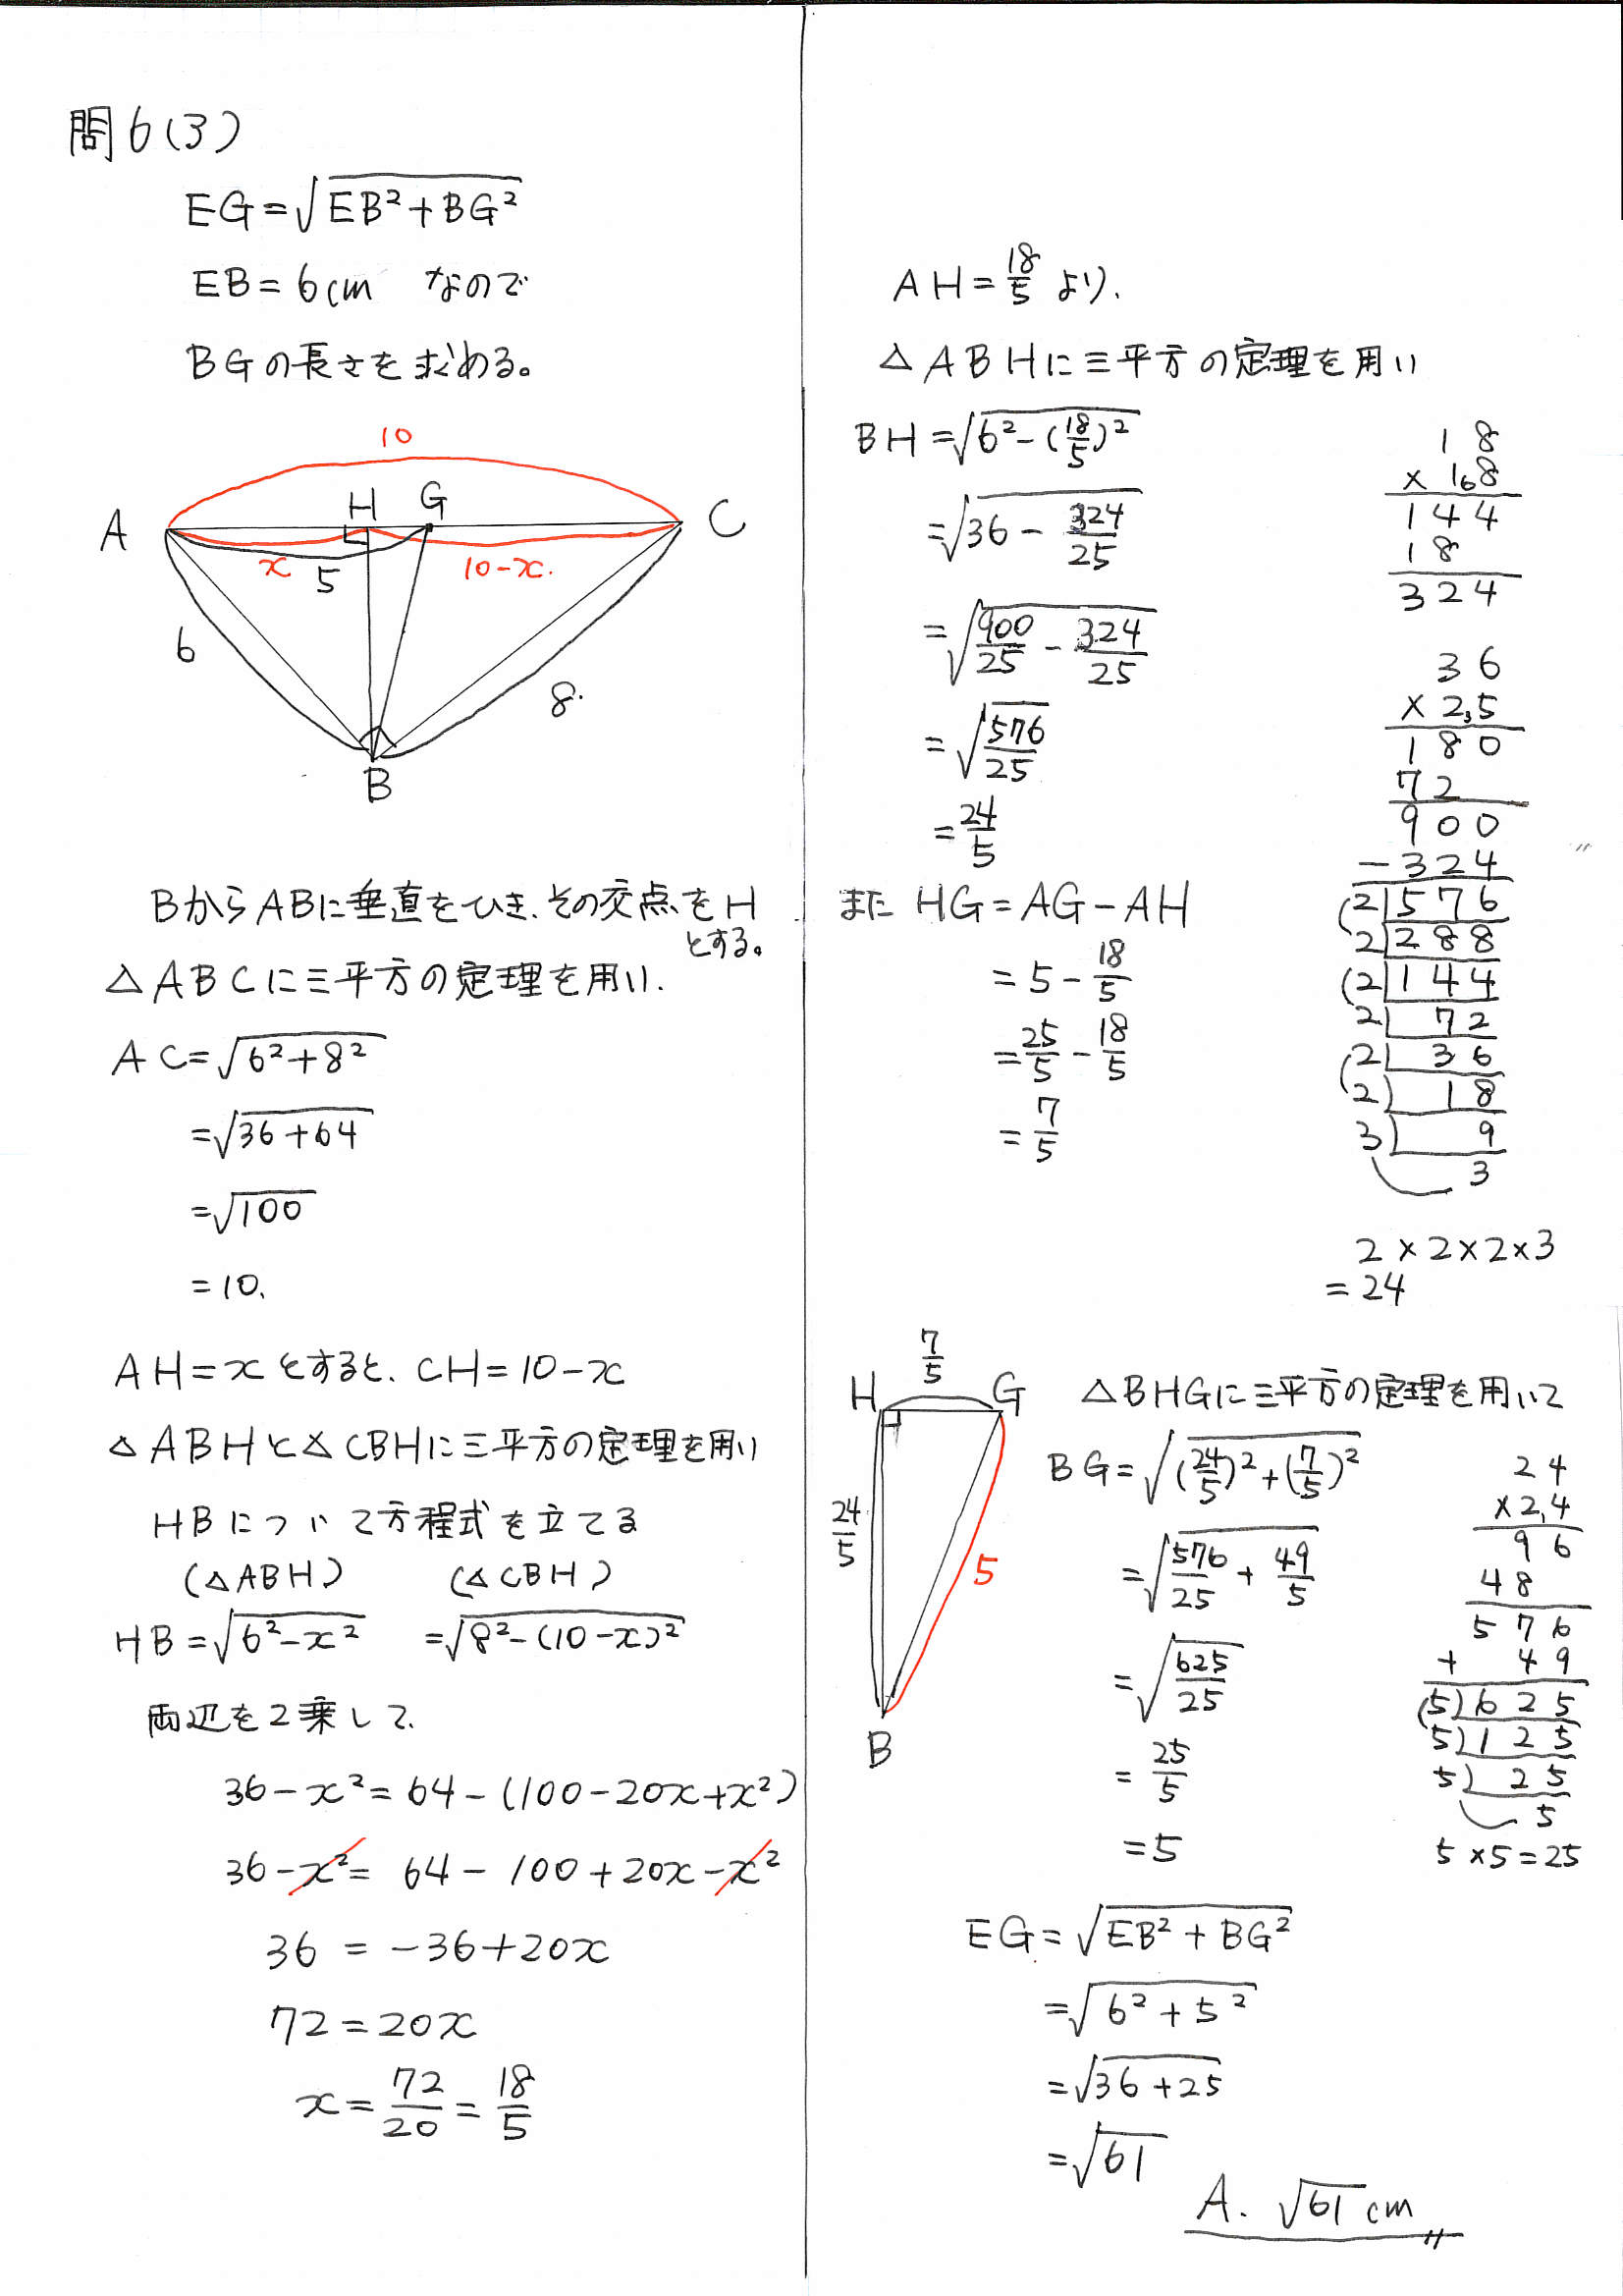 問6(3)
EG=√(EB²+BG²)
EB=6cm なので
BGの長さを求める。
10
A H G C
x 5 10-x.
6 8.
B
BからABに垂直をひき、その交点をH
とする。
△ABCに三平方の定理を用い.
AC=√(6²+8²)
=√(36+64)
=√100
=10.
AH=xとすると、CH=10-x
△ABHと△CBHに三平方の定理を用い
HBについて方程式を立てる
(△ABH) (△CBH)
HB=√(6²-x²) =√(8²-(10-x)²)
両辺を2乗して、
36-x²=64-(100-20x+x²)
36-x²=64-100+20x-x²
36=-36+20x
72=20x
x=72/20=18/5
AH=18/5より.
△ABHに三平方の定理を用い
BH=√(6²-(18/5)²)
=√(36-324/25)
=√(900/25-324/25)
=√(576/25)
=24/5
また HG=AG-AH
=5-18/5
=25/5-18/5
=7/5
18
×168
144
18
324
36
×2,5
180
72
900
-324
2)576
2)288
2)144
2)72
2)36
2)18
3)9
3
2×2×2×3
=24
7/5
H G
24/5
5
B
△BHGに三平方の定理を用いて
BG=√((24/5)²+(7/5)²)
=√(576/25+49/5)
=√(625/25)
=25/5
=5
24
×2,4
96
48
576
+49
5)625
5)125
5)25
5
5×5=25
EG=√(EB²+BG²)
=√(6²+5²)
=√(36+25)
=√61
A. √61cm